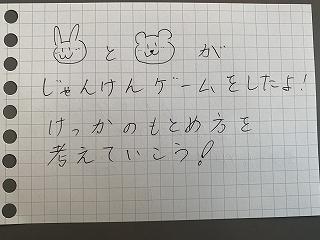 と が
じゃんけんゲームをしたよ!
けっかのもとめ方を
考えていこう!